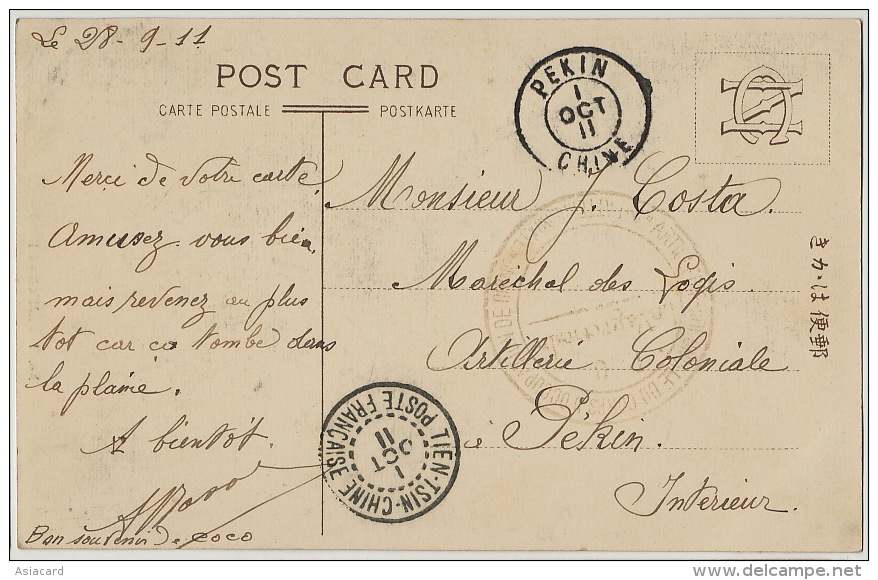 Le 28-9-11
POST CARD
CARTE POSTALE
POSTKARTE
PEKIN
1
OCT
11
CHINE
Merci de votre carte.
Amusez vous bien,
mais revenez au plus
tot car ca tombe dans
la plaine.
A bientôt.
Bon souvenir de coco
Monsieur J. Costa.
Maréchal des Logis
Artillerie Coloniale
à Pékin.
Intérieur
TIEN-TSIN-CHINE POSTE FRANÇAISE
1
OCT
11
きかは便郵
Asiacard
delcampe.net